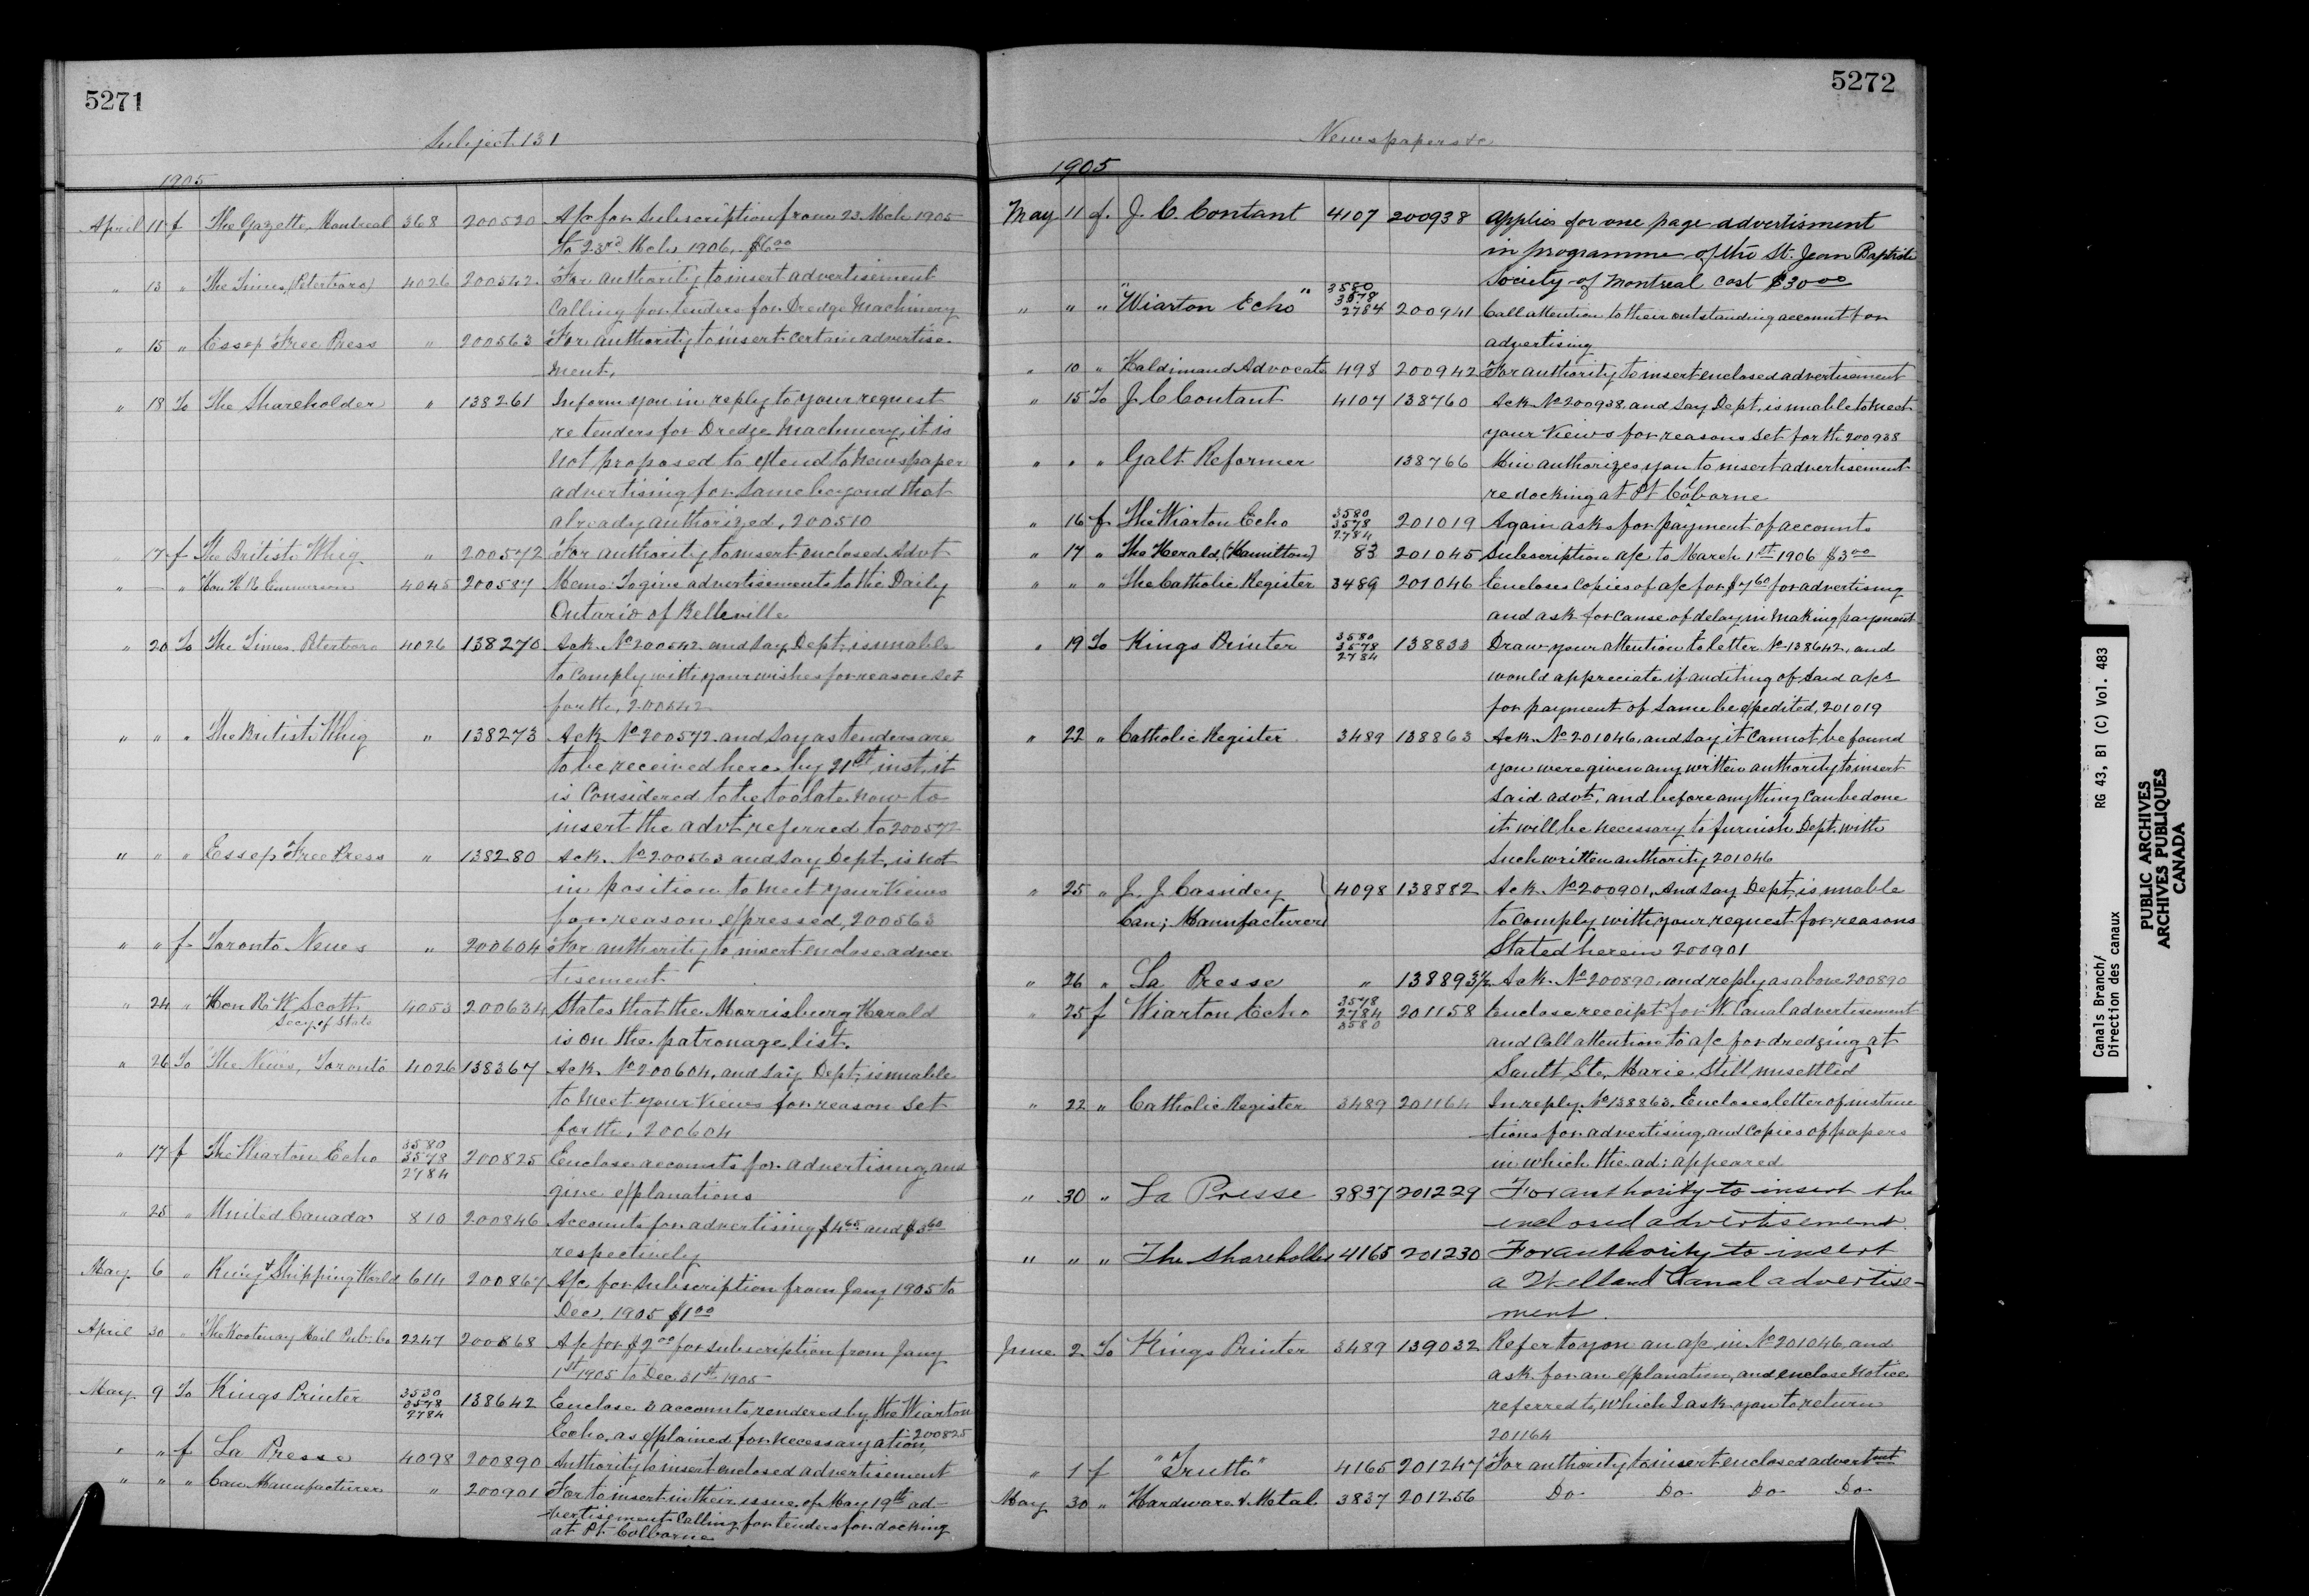 5271
Subject 131
1905
April 11 f The Gazette, Montreal 368 200520 A/c for Subscription from 23 Mch 1905
to 23rd Mch 1906, $6.00
" 13 " The Times, (Peterboro) 4026 200542 For authority to insert advertisement
Calling for tenders for Dredge Machinery
" 15 " Essex Free Press " 200563 For authority to insert certain advertise-
ment.
" 18 To The Shareholder " 138261 Inform you in reply to your request
re tenders for Dredge Machinery, it is
not proposed to extend to Newspaper
advertising for same beyond that
already authorized, 200510
" 17 f The British Whig " 200572 For authority to insert enclosed Advt
" — " Hon H R Emmerson 4045 200587 Memo: To give advertisements to the Daily
Ontario of Belleville
" 20 To The Times, Peterboro 4026 138270 Ack No 200542 and say Dept, is unable
to comply with your wishes for reason set
forth, 200542
" " " The British Whig " 138273 Ack No 200572 and say as tenders are
to be received here by 21st inst, it
is Considered to be too late now to
insert the advt, referred to 200572
" " " Essex Free Press " 138280 Ack. No 200563 and say Dept, is not
in position to meet your views
for reason expressed, 200563
" " f Toronto News " 200604 For authority to insert enclose adver
tisement
" 24 " Hon R W Scott 4053 200634 States that the Morrisburg Harald
Secy of State
is on the patronage list.
" 26 To The News, Toronto 4026 138367 Ack. No 200604, and say Dept; is unable
to meet your views for reason set
forth, 200604
" 17 f The Wiarton Echo 3580 3578 2784 200825 Enclose accounts for advertising, and
give explanations
" 25 " United Canada 810 200846 Accounts for advertising $4.65 and $3.60
respectively
May 6 " Ry & Shipping World 614 200867 A/c for Subscription from Jany 1905 to
Dec, 1905 $1.00
April 30 " The Kootenay Mail Pub. Co 2247 200868 A/c for $2.00 for subscription from Jany
1st 1905 to Dec 31st 1905
May 9 To Kings Printer 3530 3578 2784 138642 Enclose 3 accounts rendered by the Wiarton
Echo, as explained for necessary ation, 200825
" " f La Presse 4098 200890 Authority to insert enclosed advertisement
" " " Can Manufacturer " 200901 For to insert in their issue of May 19th ad-
vertisement Calling for tenders for docking
at Pt. Colborne
5272
Newspapers &c
1905
May 11 f. J. C. Contant 4107 200938 applies for one page advertisment
in programme of the St. Jean Baptiste
Society of Montreal cost $30.00
" " " "Wiarton Echo" 3580 3578 2784 200941 Call attention to their outstanding account for
advertising
" 10 " Haldimand Advocate 498 200942 For authority to insert enclosed advertisement
" 15 To J. C Contant 4107 138760 Ack No 200938, and say Dept, is unable to meet
your views for reasons set forth 200938
" " " Galt Reformer 138766 Min authorizes you to insert advertisement
re docking at Pt Colborne
" 16 f The Wiarton Echo 3580 3578 2784 201019 Again asks for payment of accounts
" 17 " The Herald, (Hamilton) 83 201045 Subscription a/c to March 1st 1906 $3.00
" " " The Catholic Register 3489 201046 Encloses copies of a/c for $7.60 for advertising
and ask for cause of delay in making payment
" 19 To Kings Printer 3580 3578 2784 138833 Draw your attention to letter No 138642, and
would appreciate if auditing of said a/cs
for payment of same be expedited, 201019
" 22 " Catholic Register 3489 138863 Ack No 201046, and say it cannot be found
you were given any written authority to insert
said advt, and before anything can be done
it will be necessary to furnish Dept. with
such written authority 201046
" 25 " J. J. Cassidey 4098 138882 Ack No 200901, and say Dept, is unable
Can; Manufacturer
to comply with your request for reasons
Stated herein 200901
" 26 " La Presse " 138893½ Ack. No 200890, and reply as above 200890
" 25 f Wiarton Echo 3578 2784 3580 201158 Enclose receipt for W. Canal advertisement
and Call attention to a/c for dredging at
Sault Ste, Marie still unsettled
" 22 " Catholic Register 3489 201164 In reply No 138863, Encloses letter of instruc
tions for advertising, and copies of papers
in which the ad: appeared
" 30 " La Presse 3837 201229 For authority to insert the
enclosed advertisement
" " " The Shareholder 4165 201230 For authority to insert
a Welland Canal advertise-
ment.
June 2 To Kings Printer 3489 139032 Refer to you an a/c in No 201046, and
ask for an explanation, and enclose notice
referred to, which I ask you to return
201164
" 1 f "Truth" 4165 201247 For authority to insert enclosed advertmt
May 30 " Hardware & Metal 3837 201256 Do Do Do Do
Canals Branch/ RG 43, B1 (C) Vol. 483
Direction des canaux
PUBLIC ARCHIVES
ARCHIVES PUBLIQUES
CANADA